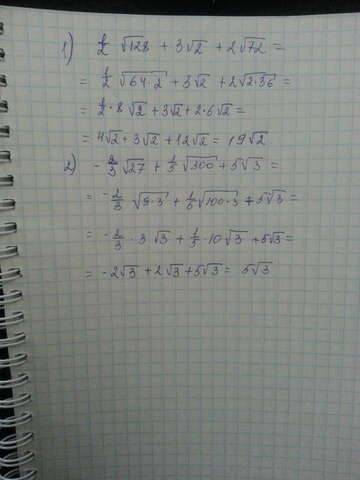 1) 1/2 √128 + 3√2 + 2√72 =
= 1/2 √64·2 + 3√2 + 2√2·36 =
= 1/2 · 8√2 + 3√2 + 2·6√2 =
= 4√2 + 3√2 + 12√2 = 19√2
2) - 2/3 √27 + 1/5 √300 + 5√3 =
= - 2/3 √9·3 + 1/5 √100·3 + 5√3 =
= - 2/3 · 3√3 + 1/5 · 10√3 + 5√3 =
= -2√3 + 2√3 + 5√3 = 5√3